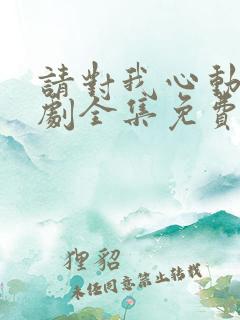 請對我心動
劇全集免費
狸貂
未经同意禁止转载